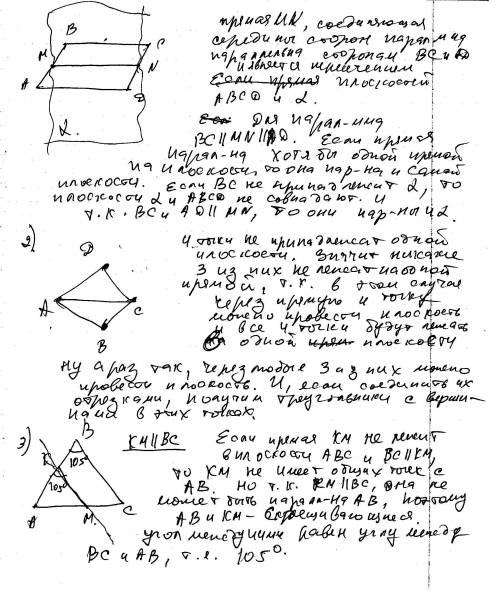 прямая MN, соединяющая
середины сторон парал-ма
параллельна сторонам BC и AD
и является пересечением
Если прямая плоскостей
ABCD и α.
Если Для парал-мма
BC||MN||AD. Если прямая
парал-на хотя бы одной прямой
на плоскости, то она пар-на и самой
плоскости. Если BC не принадлежит α, то
плоскости α и ABCD не совпадают. И
т.к. BC и AD || MN, то они пар-ны и α.
B
C
M
N
A
D
α.
2)
4 точки не принадлежат одной
плоскости. Значит никакие
3 из них не лежат на одной
прямой, т.к. в этом случае
через прямую и точку
можно провести плоскость
и все 4 точки будут лежать
в одной прям плоскости
D
A
C
B
Ну а раз так, через любые 3 из них можно
провести плоскость. И, если соединить их
отрезками, получим треугольники с верши-
нами в этих точках.
3)
KM||BC
Если прямая KM не лежит
в плоскости ABC и BC||KM,
то KM не имеет общих точек с
AB. Но т.к. KM||BC, она не
может быть парал-на AB, поэтому
AB и KM - скрещивающиеся.
Угол между ними равен углу между
BC и AB, т.е. 105°.
B
105°
K
105°
A
M
C